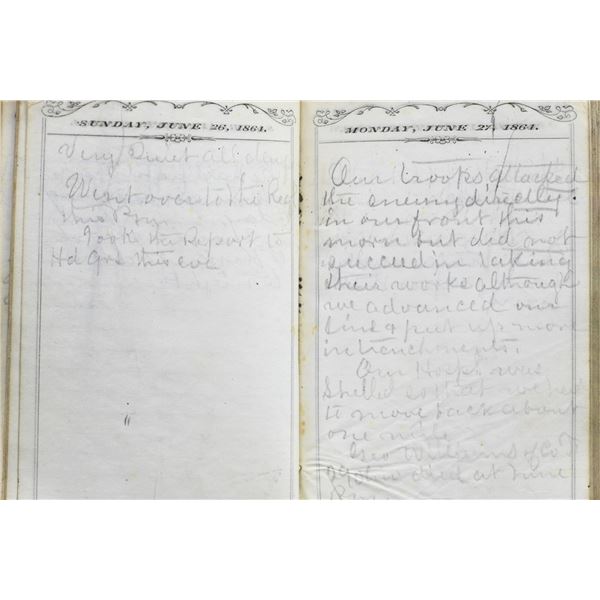 SUNDAY, JUNE 26, 1864.
Very Quiet all day
Went over to the Reg
this
Took the Report to
Hd Qrs this eve
MONDAY, JUNE 27, 1864.
Our troops attacked
the enemy directly
in our front this
morn but did not
succeed in taking
their works although
we advanced our
line & put up more
intrenchments.
Our Hospt was
Shelled so that we had
to move back about
one mile
Geo Williams of Co
died at